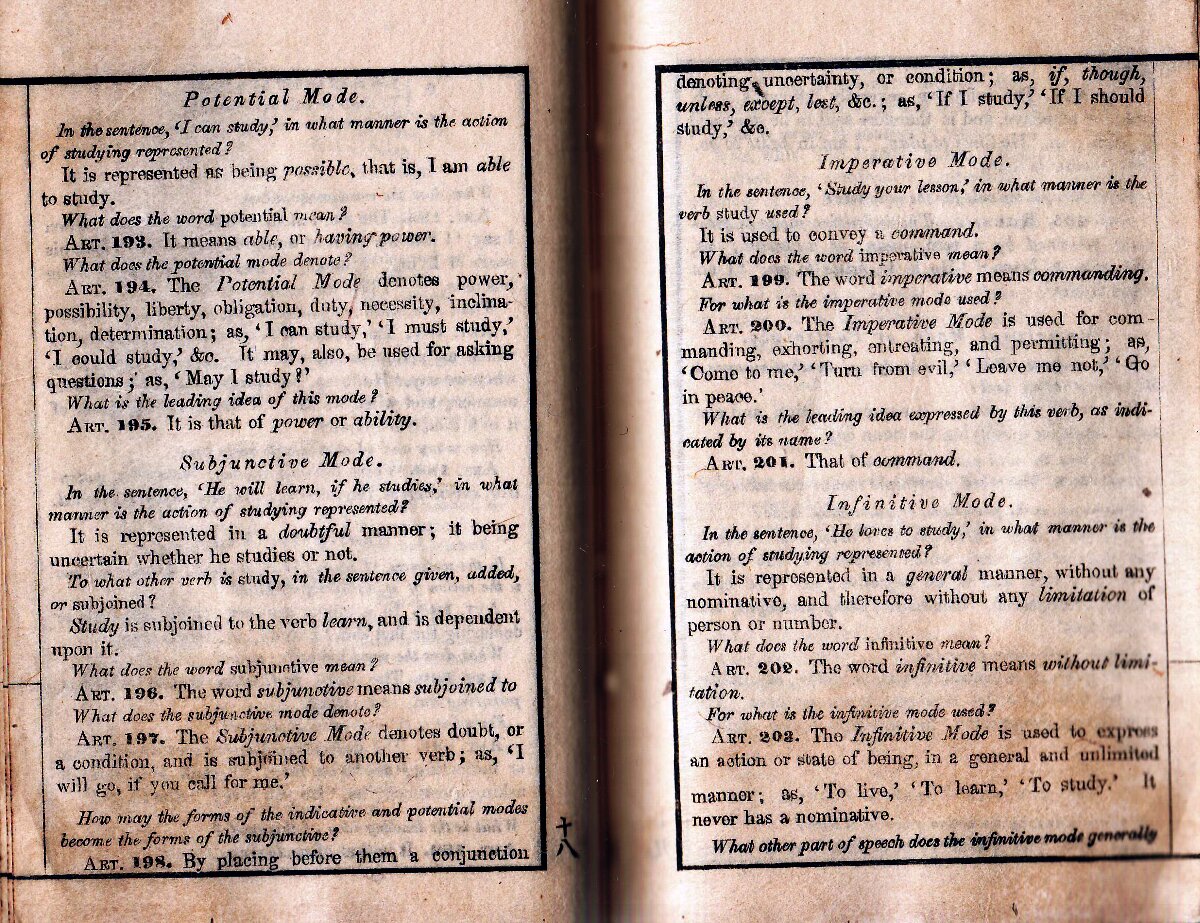 Potential Mode.
In the sentence, ‘I can study,’ in what manner is the action
of studying represented?
It is represented as being possible, that is, I am able
to study.
What does the word potential mean?
ART. 193. It means able, or having power.
What does the potential mode denote?
ART. 194. The Potential Mode denotes power,
possibility, liberty, obligation, duty, necessity, inclina-
tion, determination; as, ‘I can study,’ ‘I must study,’
‘I could study,’ &c. It may, also, be used for asking
questions; as, ‘May I study?’
What is the leading idea of this mode?
ART. 195. It is that of power or ability.
Subjunctive Mode.
In the sentence, ‘He will learn, if he studies,’ in what
manner is the action of studying represented?
It is represented in a doubtful manner; it being
uncertain whether he studies or not.
To what other verb is study, in the sentence given, added,
or subjoined?
Study is subjoined to the verb learn, and is dependent
upon it.
What does the word subjunctive mean?
ART. 196. The word subjunctive means subjoined to
What does the subjunctive mode denote?
ART. 197. The Subjunctive Mode denotes doubt, or
a condition, and is subjoined to another verb; as, ‘I
will go, if you call for me.’
How may the forms of the indicative and potential modes
become the forms of the subjunctive?
ART. 198. By placing before them a conjunction
十八
denoting uncertainty, or condition; as, if, though,
unless, except, lest, &c.; as, ‘If I study,’ ‘If I should
study,’ &c.
Imperative Mode.
In the sentence, ‘Study your lesson,’ in what manner is the
verb study used?
It is used to convey a command.
What does the word imperative mean?
ART. 199. The word imperative means commanding.
For what is the imperative mode used?
ART. 200. The Imperative Mode is used for com-
manding, exhorting, entreating, and permitting; as,
‘Come to me,’ ‘Turn from evil,’ ‘Leave me not,’ ‘Go
in peace.’
What is the leading idea expressed by this verb, as indi-
cated by its name?
ART. 201. That of command.
Infinitive Mode.
In the sentence, ‘He loves to study,’ in what manner is the
action of studying represented?
It is represented in a general manner, without any
nominative, and therefore without any limitation of
person or number.
What does the word infinitive mean?
ART. 202. The word infinitive means without limi-
tation.
For what is the infinitive mode used?
ART. 203. The Infinitive Mode is used to express
an action or state of being, in a general and unlimited
manner; as, ‘To live,’ ‘To learn,’ ‘To study.’ It
never has a nominative.
What other part of speech does the infinitive mode generally